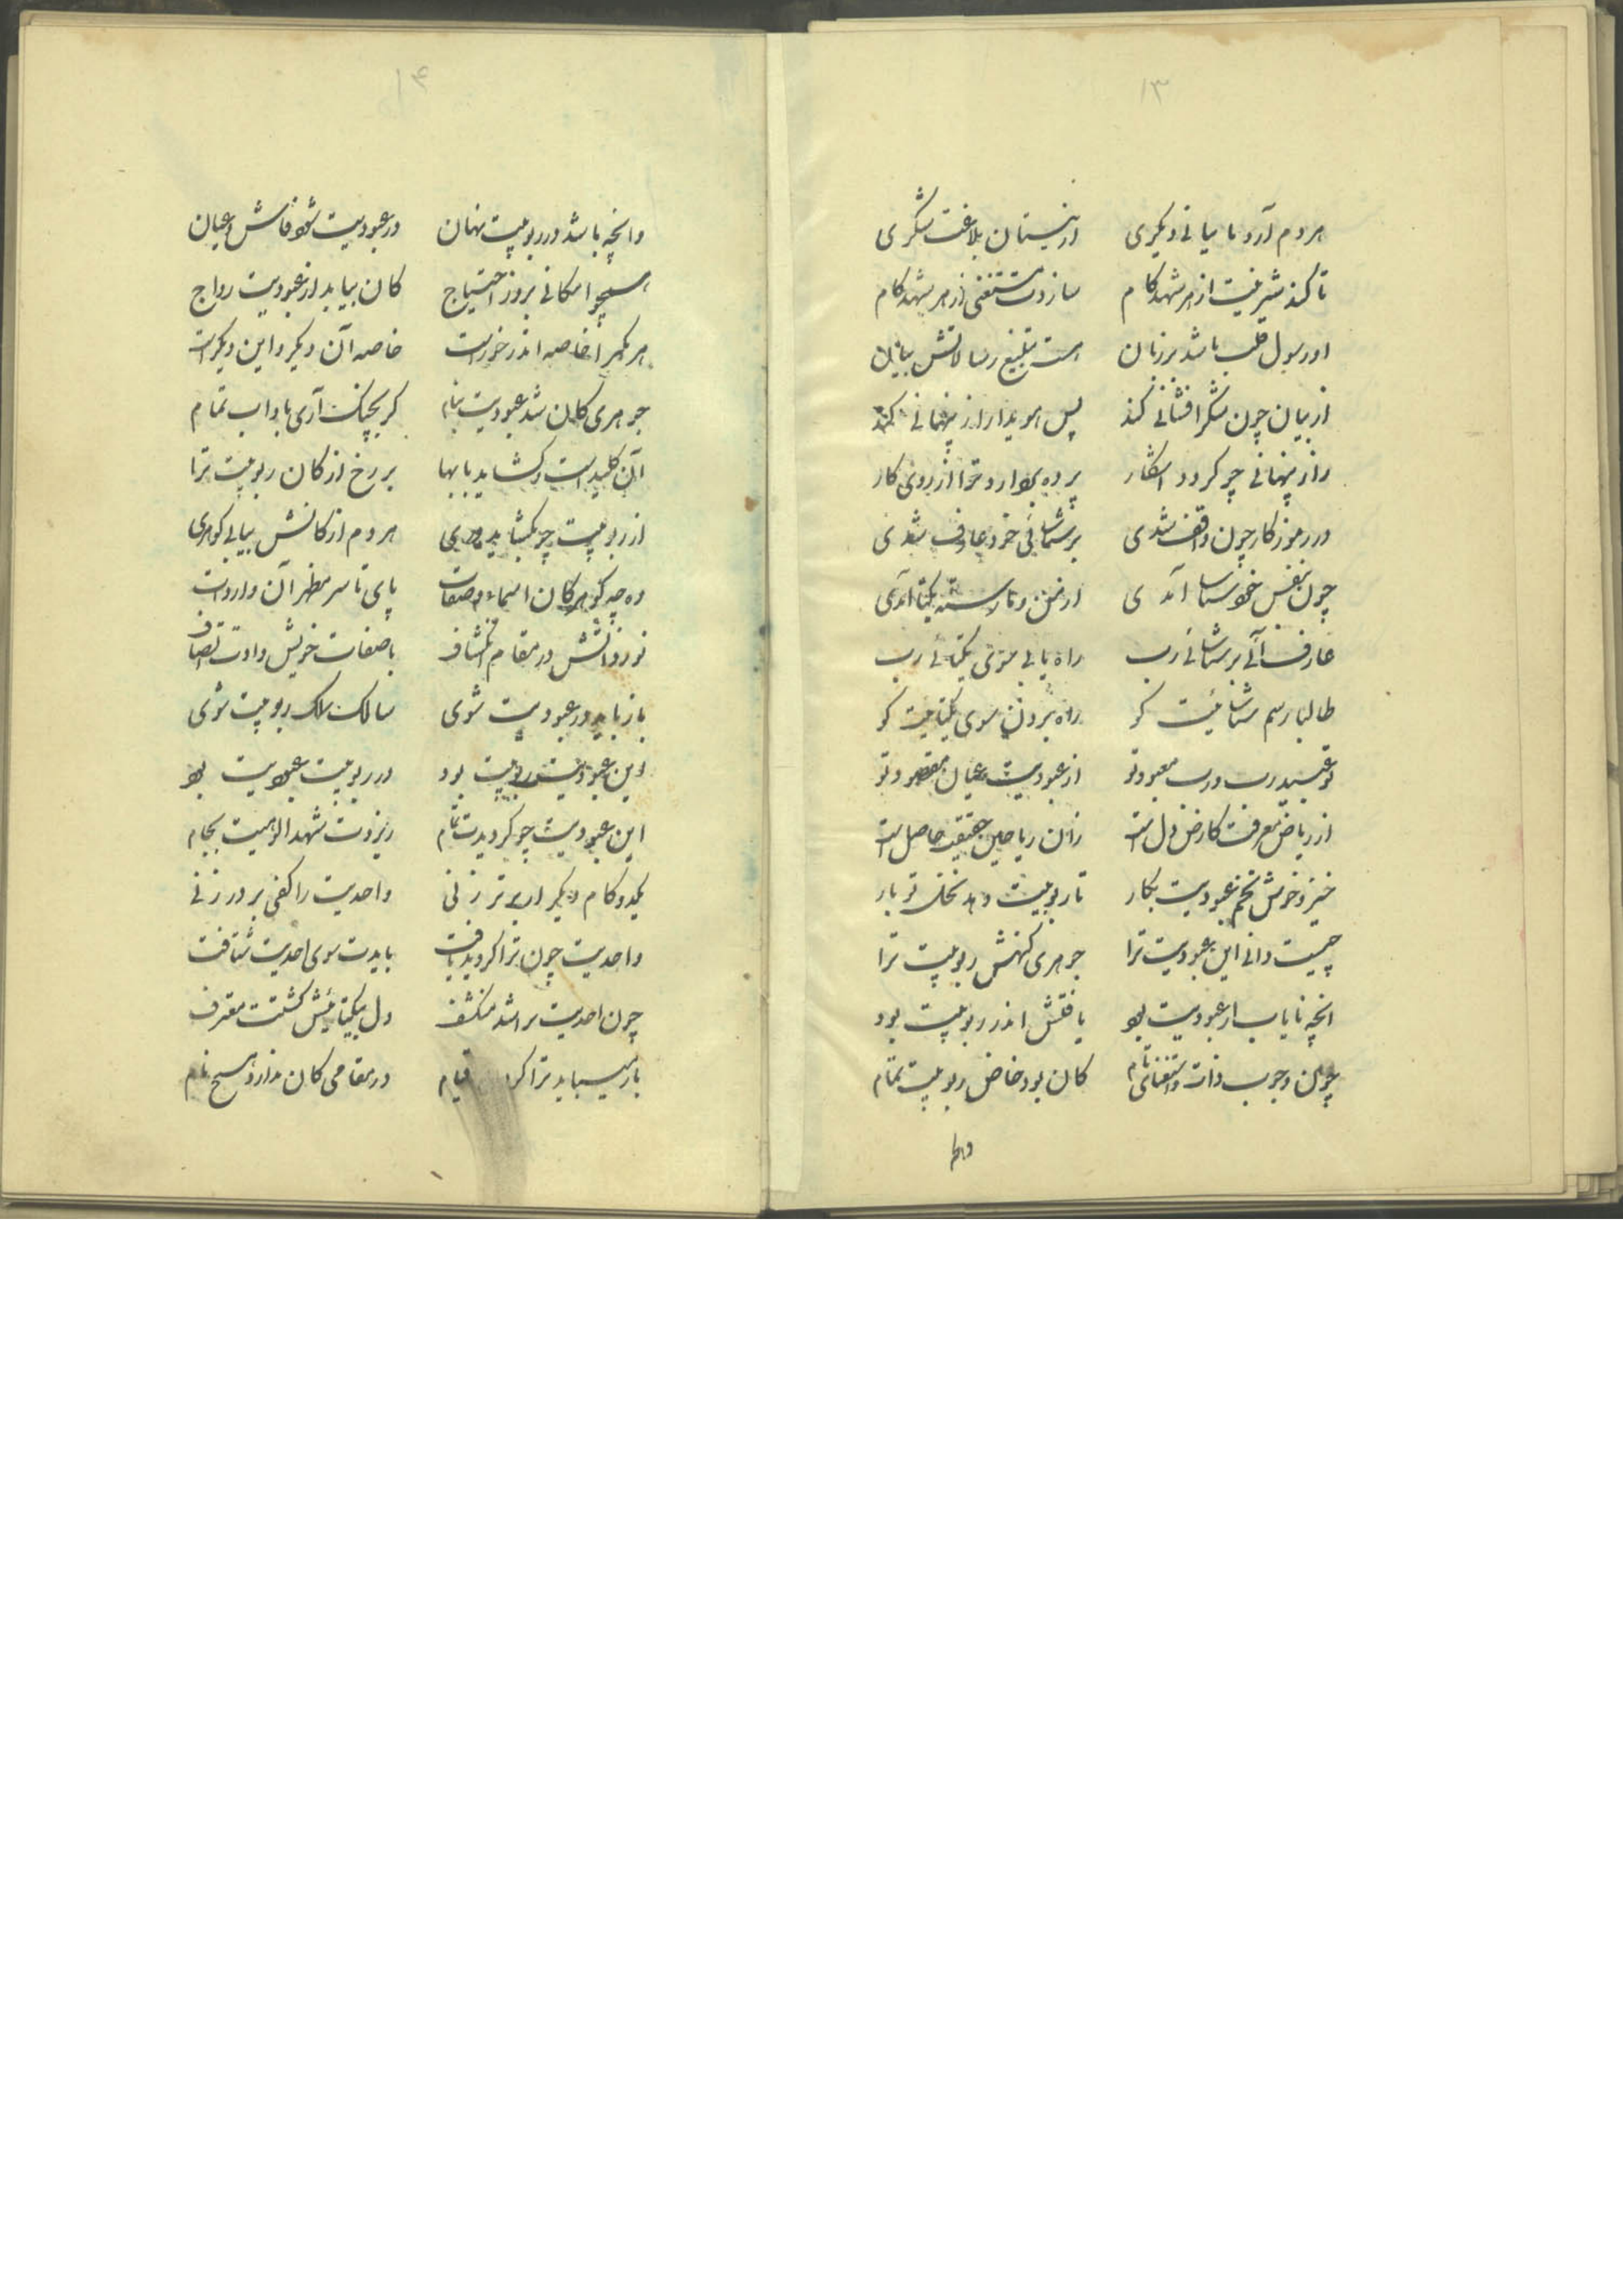 ۱۳
هر دم آرد با بیانی دیگری از نیستان بلاغت شکری
تا کند شیرینیت از هر شهد کام سازدت مستغنی از هر شهد کام
او رسول قلب باشد بر زبان هست تبلیغ رسالاتش بیان
از بیان چون شکر افشانی کند پس هویدا راز پنهانی کند
راز پنهانی چو کردد آشکار پرده بردارد ترا از روی کار
در رموز کار چون واقف شدی بر شناسائی خود عارف شدی
چون بنفس خود شناسا آمدی از من و ما رسته یکتا آمدی
عارف آئی بر شناسائی رب راه یابی سوی یکتائی رب
طالبا رسم شناسائیت کو راه بردن سوی یکتائیت کو
تو عبید رب و رب معبود تو از عبودیت عیان مقصود تو
از ریاض معرفت کارض دل است زان ریاحین حقیقت حاصل است
خیز و خوش تخم عبودیت بکار تا ربوبیت دهد نخل تو بار
چیست دانی این عبودیت ترا جوهری کنهش ربوبیت ترا
آنچه نایاب از عبودیت بود یافتش اندر ربوبیت بود
چون وجوب ذات و استغنای تام کان بود خاص ربوبیت تمام
۱۴
وانچه باشد در ربوبیت نهان در عبودیت شود فاش و عیان
همچو امکانی بروز احتیاج کان بیابد از عبودیت رواج
هر یکی را خاصه اندر خور است خاصه آن دیگر و این دیگر است
جوهری کان شد عبودیت بنام کر بچنک آری باداب تمام
آن کلید است و کشاید بابها بر رخ از کان ربوبیت ترا
از ربوبیت چو بکشاید دری هر دم از کانش بیابی کوهری
وه چه کوهر کان اسماء و صفات پای تا سر مظهر آن وارد است
نور ذاتش در مقام انکشاف با صفات خویش دادت اتصاف
باز باید در عبودیت شوی سالک ملک ربوبیت شوی
این عبودیت ربوبیت بود در ربوبیت عبودیت بود
این عبودیت چو کردیدت تمام ریزدت شهد الوهیت بجام
یکدو کام دیکر ار برتر زنی واحدیت را کفی بر در زنی
واحدیت چون ترا کردید یافت بایدت سوی احدیت شتافت
چون احدیت برا شد منکشف دل بیکتائیش کشتت معترف
باز میباید ترا کرد قیام در مقامی کان ندارد هیچ نام